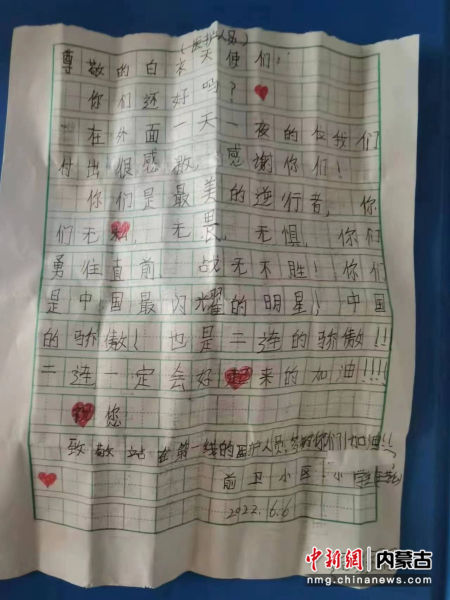 （医护人员）
尊敬的白衣天使们：
你们还好吗？
在外面一天一夜的仅我们
付出很感激，感谢你们！
你们是最美的逆行者，你
们无私，无畏，无惧，你们
勇往直前，战无不胜！你们
是中国最闪光耀的明星！！中国
的骄傲！也是二连的骄傲！！
二连一定会好起来的加油！！！！
祝您
致敬站在第一线的医护人员，你们加油！！
前卫小区：小学生
2022.6.6
中新网 内蒙古
nmg.chinanews.com